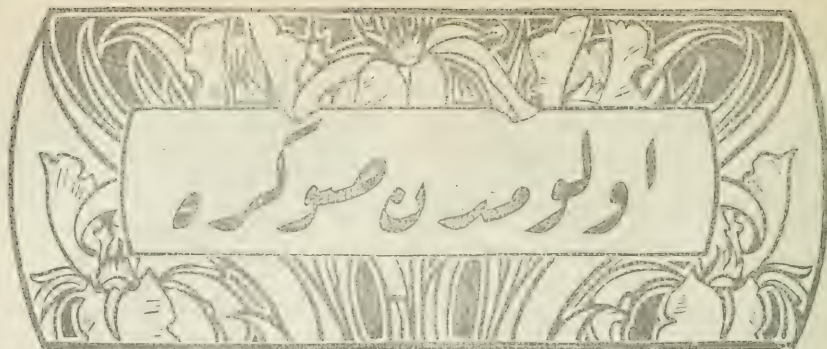 اولومدن صوکره